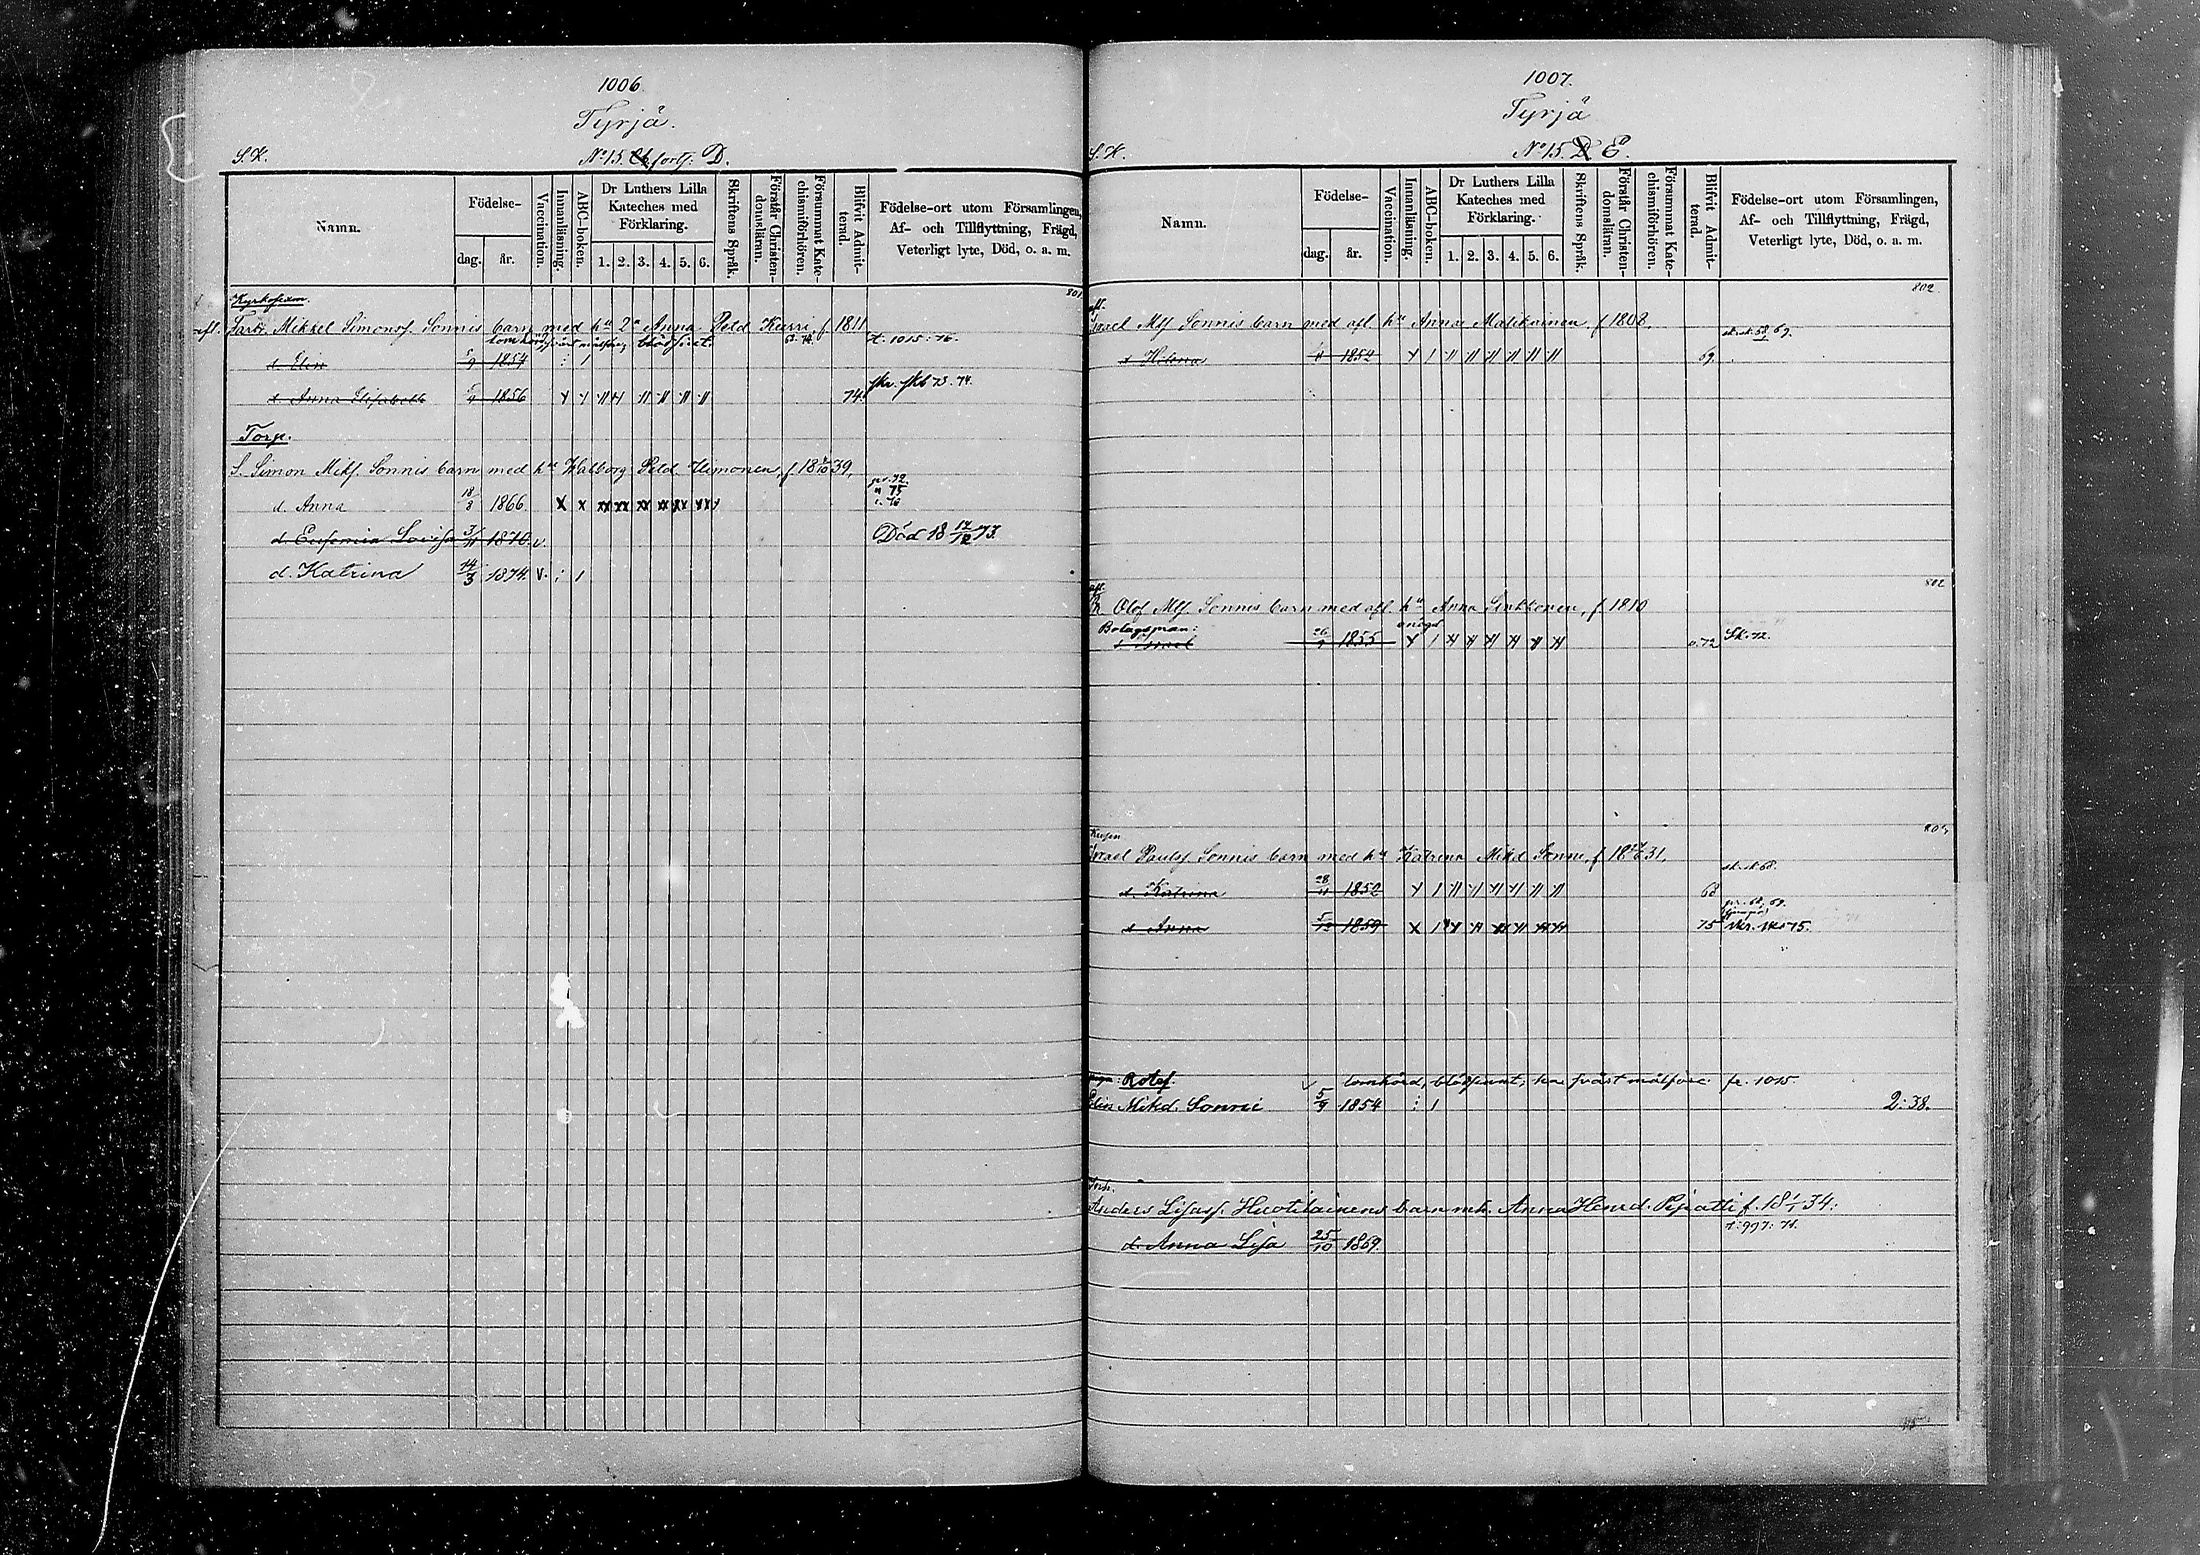 1006.
Tyrjä.
S.K. No 15. fortf. D.
Namn. Födelse- dag. år. Vaccination. Innanläsning. ABC-boken. Dr Luthers Lilla Kateches med Förklaring. 1. 2. 3. 4. 5. 6. Skriftens Språk. Förstår Christendomsläran. Försummat Katechismiförhören. Blifvit Admitterad. Födelse-ort utom Församlingen, Af- och Tillflyttning, Frägd, Veterligt lyte, Död, o. a. m.
801.
afl. Mikkel Simonsf. Sonnis barn med hu 2a Anna Peld Kurri f 1811
t. 1015: 76.
d. Elin 5/9 1854 1
fkr. fkb 73. 74.
d. Anna Elisabeth 1856 74
Torp.
S. Simon Mikf. Sonnis barn med hu Walborg Peld Himonen, f. 18 39,
pr. 72
" 75
d. Anna 18/3 1866
d. Eufemia Lovisa 3/11 1870. v. Död 18 17/12 73.
d. Katrina 14/3 1874 v. : 1
1007.
Tyrjä
S.K. No 15. D E.
Namn. Födelse- dag. år. Vaccination. Innanläsning. ABC-boken. Dr Luthers Lilla Kateches med Förklaring. 1. 2. 3. 4. 5. 6. Skriftens Språk. Förstår Christendomsläran. Försummat Katechismiförhören. Blifvit Admitterad. Födelse-ort utom Församlingen, Af- och Tillflyttning, Frägd, Veterligt lyte, Död, o. a. m.
802.
afl.
Israel Mlf Sonnis barn med afl. hu Anna Matikainen f 1808.
d Helena 1852 69.
802
afl.
Olof Mlf. Sonnis barn med afl. hu Anna Sinkkonen, f. 1810
Bolagsman:
s Israel 26 1855 o. 72 Sk. 72.
Israel Paulsf Sonnis barn med hu Katrina Mikd Sonni, f 18 31,
d. Katrina 28/11 1852 68
pr. 68. 69.
d Anna 5/12 1859 75
Rotef. lomhörd, blödsint, har fvårt målföre. fr. 1015.
Elin Mikd. Sonni 5/9 1854 : 1 2: 38.
Anders Lifasf. Huotilainens barn mh. Anna Henrd. Pipatti f. 18 1/1 34:
t. 997: 71.
d. Anna Lisa 25/10 1869.